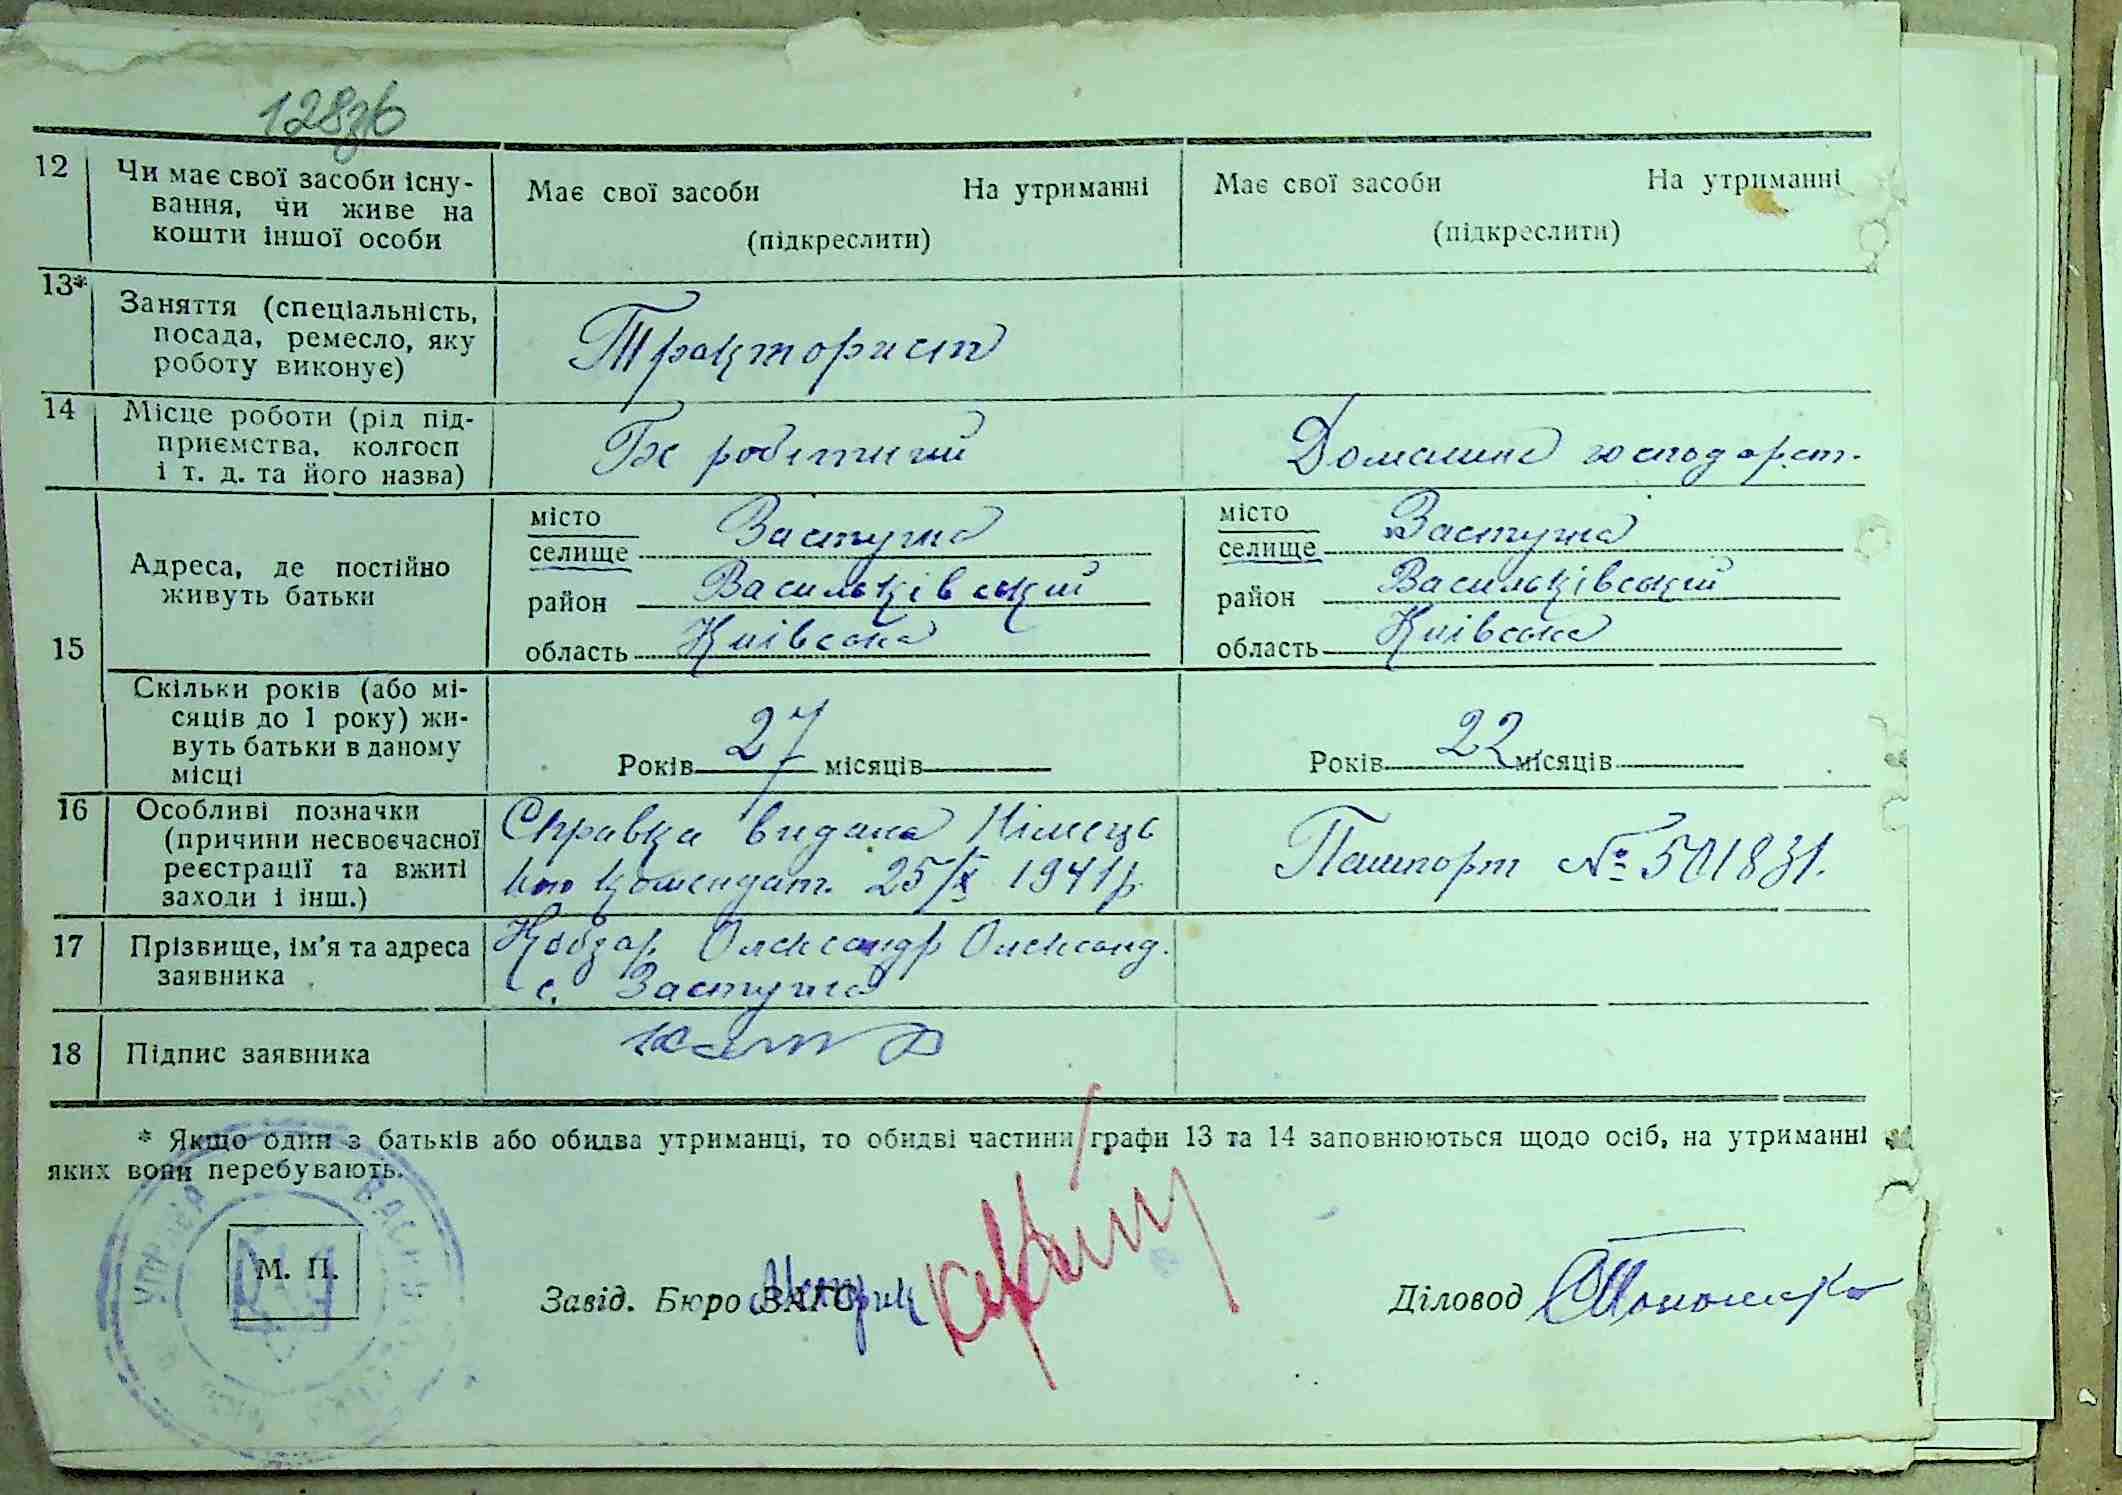 128зв
12 Чи має свої засоби існу-
вання, чи живе на
кошти іншої особи
Має свої засоби На утриманні
(підкреслити)
Має свої засоби На утриманні
(підкреслити)
13* Заняття (спеціальність,
посада, ремесло, яку
роботу виконує)
Тракторист
14 Місце роботи (рід під-
приємства, колгосп
і т. д. та його назва)
Без робітний
Домашнє господарст.
15 Адреса, де постійно
живуть батьки
місто
селище Застугна
район Васильківський
область Київська
місто
селище Застугна
район Васильківський
область Київська
Скільки років (або мі-
сяців до 1 року) жи-
вуть батьки в даному
місці
Років 27 місяців
Років 22 місяців
16 Особливі позначки
(причини несвоєчасної
реєстрації та вжиті
заходи і інш.)
Справка видана Німець
кою комендат. 25/X 1941р.
Пашпорт № 501831.
17 Прізвище, ім'я та адреса
заявника
Кобзар Олександр Олександ.
с. Застугна
18 Підпис заявника
* Якщо один з батьків або обидва утриманці, то обидві частини графи 13 та 14 заповнюються щодо осіб, на утриманні
яких вони перебувають.
М. П.
Завід. Бюро ЗАГС
Діловод